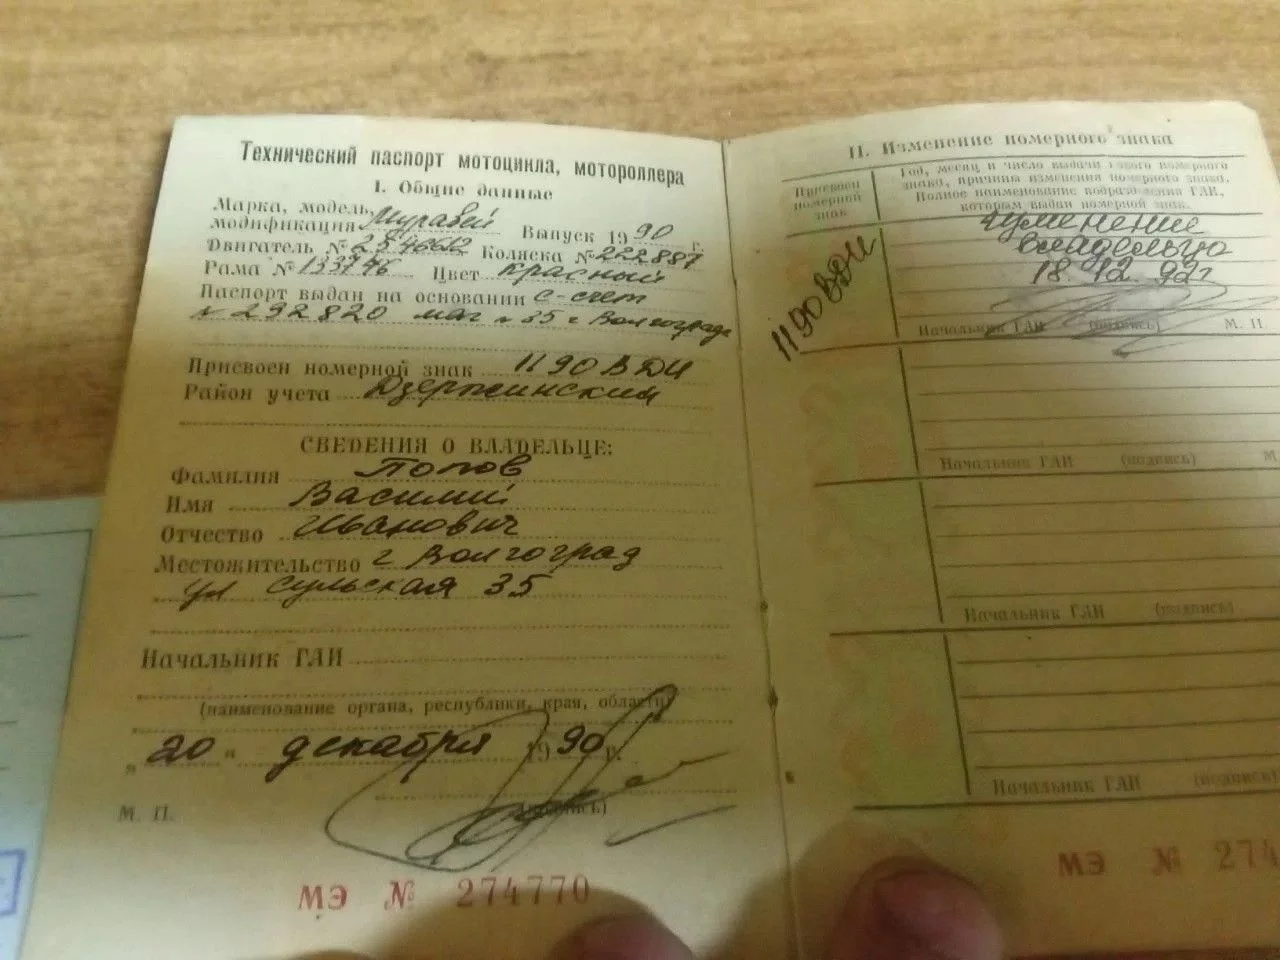 Технический паспорт мотоцикла, мотороллера
I. Общие данные
Марка, модель,
модификация Муравей Выпуск 1990 г.
Двигатель № Коляска № 222887
Рама № 133746 Цвет красный
Паспорт выдан на основании с-счет
№ 292820 маг № 35 г Волгограда
Присвоен номерной знак 1190 ВДИ
Район учета Дзержинский
СВЕДЕНИЯ О ВЛАДЕЛЬЦЕ:
Фамилия Попов
Имя Василий
Отчество Иванович
Местожительство г Волгоград
ул 35
Начальник ГАИ
(наименование органа, республики, края, области)
„20“ декабря 1990 г.
(подпись)
М. П.
МЭ № 274770
II. Изменение номерного знака
Присвоен номерной знак
Год, месяц и число выдачи нового номерного
знака, причина изменения номерного знака.
Полное наименование подразделения ГАИ,
которым выдан номерной знак.
1190 ВДИ
владельца
18.12.92г
Начальник ГАИ (подпись) М. П
Начальник ГАИ (подпись) М
Начальник ГАИ (подпись)
Начальник ГАИ (подпись)
МЭ № 274